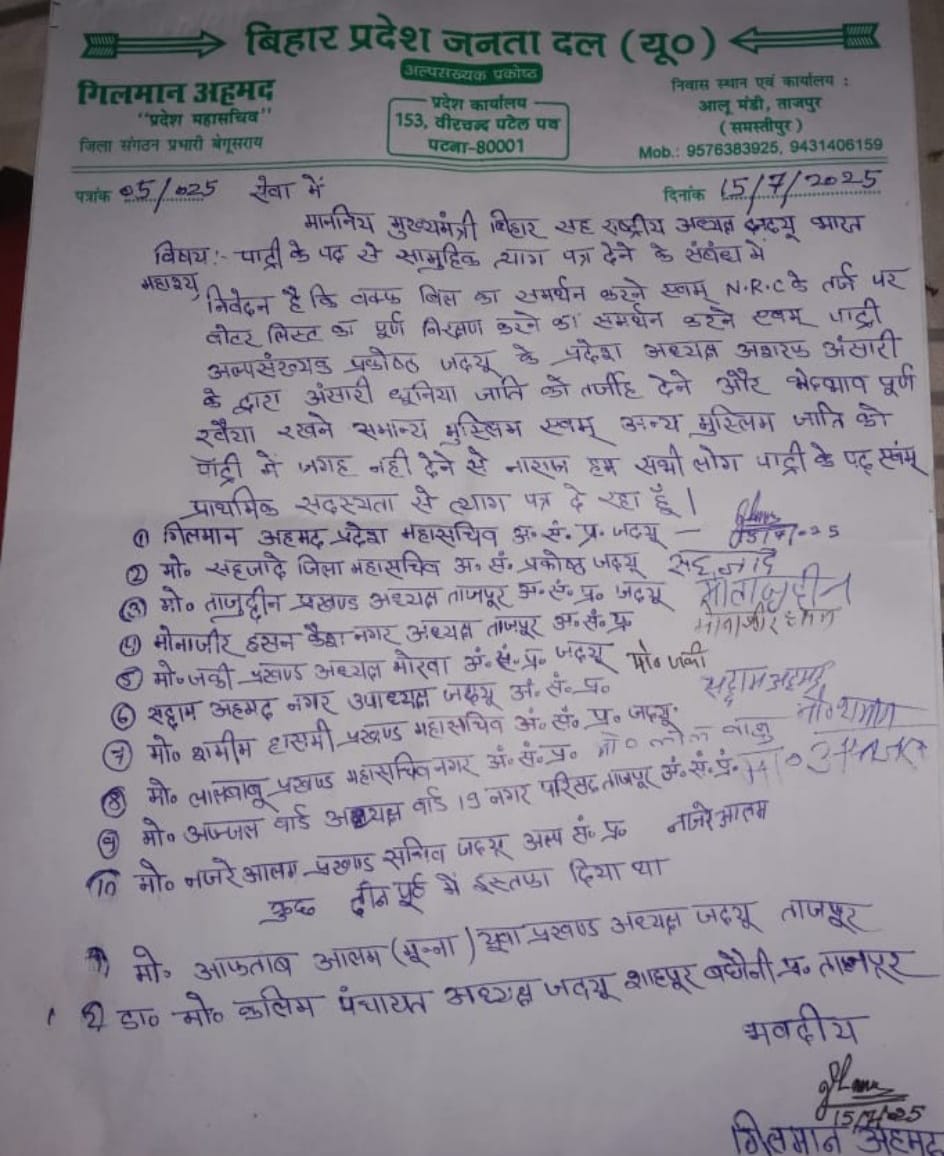 बिहार प्रदेश जनता दल (यू०)
अल्पसंख्यक प्रकोष्ठ
गिलमान अहमद
"प्रदेश महासचिव"
जिला संगठन प्रभारी बेगूसराय
प्रदेश कार्यालय
153, वीरचन्द पटेल पथ
पटना-80001
निवास स्थान एवं कार्यालय :
आलू मंडी, ताजपुर
(समस्तीपुर)
Mob.: 9576383925, 9431406159
पत्रांक 05/025 सेवा में दिनांक 15/7/2025
माननिय मुख्यमंत्री बिहार सह राष्ट्रीय अध्यक्ष जदयू भारत
विषय:- पार्टी के पद से सामुहिक त्याग पत्र देने के संबंध में
महाशय,
निवेदन है कि वक्फ बिल का समर्थन करने एवम् N.R.C के तर्ज पर
वोटर लिस्ट का पूर्ण निरक्षण करने का समर्थन करने एवम् पार्टी
अल्पसंख्यक प्रकोष्ठ जदयू के प्रदेश अध्यक्ष अशरफ अंसारी
के द्वारा अंसारी धूनिया जाति को तर्जीह देने और भेदभाव पूर्ण
रवैया रखने समान्य मुस्लिम एवम् अन्य मुस्लिम जाति को
पार्टी में जगह नही देने से नाराज हम सभी लोग पार्टी के पद एवम्
प्राथमिक सदस्यता से त्याग पत्र दे रहा हूँ।
① गिलमान अहमद प्रदेश महासचिव अ. सं. प्र. जदयू — 15/7/25
② मो० सहजादे जिला महासचिव अ. सं. प्रकोष्ठ जदयू सहजादे
③ मो० ताजुद्दीन प्रखण्ड अध्यक्ष ताजपूर अ. सं. प्र. जदयू मो ताजुद्दीन
④ मोनाजीर हसन कैश नगर अध्यक्ष ताजपूर अ. सं. प्र मोनाजीर हसन
⑤ मो० जकी प्रखण्ड अध्यक्ष मोरवा अं. सं. प्र. जदयू मो० जकी
⑥ सद्दाम अहमद नगर उपाध्यक्ष जदयू अं. सं. प्र. सद्दाम अहमद
⑦ मो० शमीम हासमी प्रखण्ड महासचिव अं. सं. प्र. जदयू मो० शमीम
⑧ मो० लालबाबू प्रखण्ड महासचिव नगर अं. सं. प्र. मो० लाल बाबु
⑨ मो० अफ्जल वार्ड अध्यक्ष वार्ड 19 नगर परिसद ताजपूर अं. सं. प्रं. मो०
10 मो० नजरे आलम प्रखण्ड सचिव जदयू अल्प सं. प्र. नाजरे आलम
कुछ दीन पूर्व में इस्तफा दिया था
1) मो. आफताब आलम (मून्ना) यूवा प्रखण्ड अध्यक्ष जदयू ताजपूर
2) डा० मो० कलिम पंचायत अध्यक्ष जदयू शाहपूर बघौनी प्र. ताजपूर
भवदीय
15/7/25
गिलमान अहमद